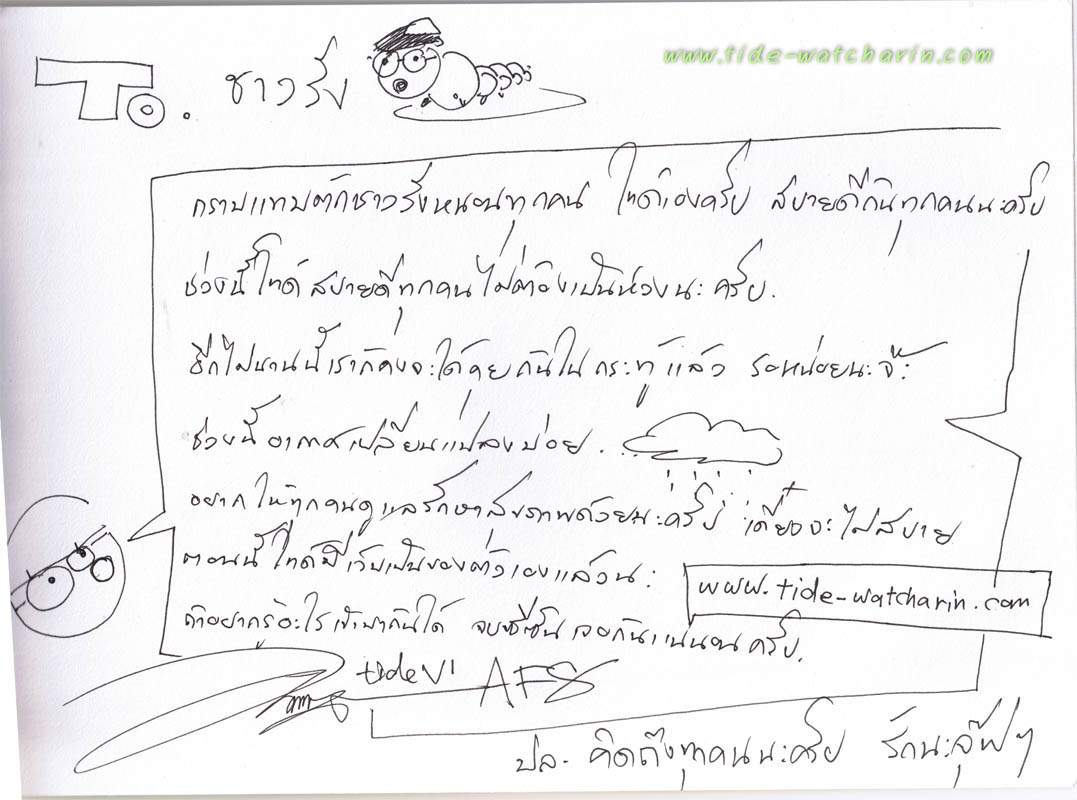 www.tide-watcharin.com
To. ชาวรัง
กราบแทบตักชาวรังหนอนทุกคน ไทด์เองครับ สบายดีกันทุกคนนะครับ
ช่วงนี้ไทด์สบายดีทุกคนไม่ต้องเป็นห่วงนะครับ.
อีกไม่นานนี้เราก็คงจะได้คุยกันในกระทู้แล้ว รอหน่อยนะจ๊ะ
ช่วงนี้อากาศเปลี่ยนแปลงบ่อย.
อยากให้ทุกคนดูแลรักษาสุขภาพด้วยนะครับ เดี๋ยวจะไม่สบาย
ตอนนี้ไทด์มีเว็บเป็นของตัวเองแล้วนะ www.tide-watcharin.com
ถ้าอยากรู้อะไรเข้ามากันได้ จบซีซั่นเจอกันแน่นอนครับ.
tide V1 AF8
ปล. คิดถึงทุกคนนะครับ รักนะจุ๊บๆ